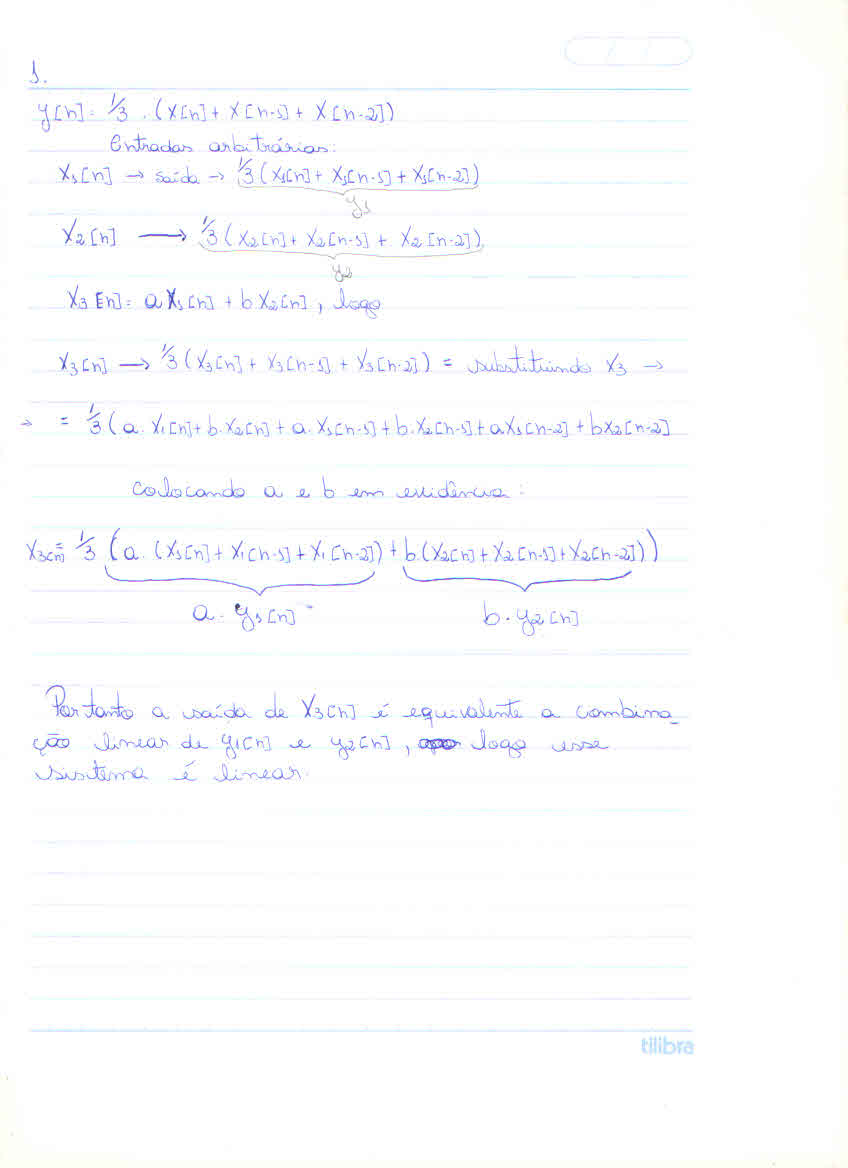 1.
y[n] = 1/3 . (x[n] + x[n-1] + x[n-2])
Entradas arbitrárias:
x1[n] → saída → 1/3 (x1[n] + x1[n-1] + x1[n-2])
y1
x2[n] → 1/3 (x2[n] + x2[n-1] + x2[n-2])
y2
x3[n] = a x1[n] + b x2[n], logo
x3[n] → 1/3 (x3[n] + x3[n-1] + x3[n-2]) = substituindo x3 →
→ = 1/3 (a. x1[n] + b. x2[n] + a. x1[n-1] + b. x2[n-1] + a x1[n-2] + b x2[n-2]
colocando a e b em evidência:
x3[n] = 1/3 (a. (x1[n] + x1[n-1] + x1[n-2]) + b. (x2[n] + x2[n-1] + x2[n-2]))
a. y1[n] b. y2[n]
Portanto a saída de x3[n] é equivalente a combina_
ção linear de y1[n] e y2[n], logo esse
sistema é linear.
tilibra